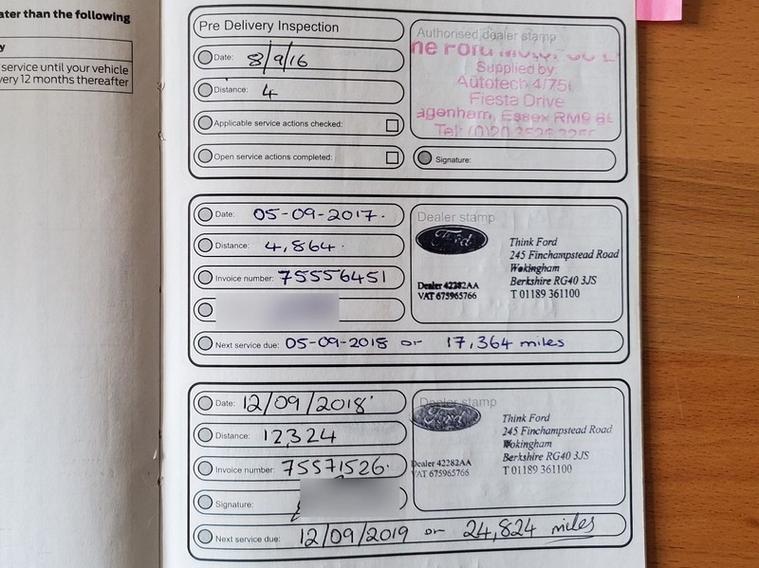 ater than the following
y
service until your vehicle
very 12 months thereafter
Pre Delivery Inspection
Date: 8/9/16
Distance: 4
Applicable service actions checked:
Open service actions completed:
Authorised dealer stamp
Supplied by:
Autotech
Fiesta Drive
agenham, Essex RM9
Signature:
Date: 05-09-2017.
Distance: 4,864.
Invoice number: 75556451
Next service due: 05-09-2018 or 17,364 miles
Dealer stamp
Ford
Dealer 42282AA
VAT 675965766
Think Ford
245 Finchampstead Road
Wokingham
Berkshire RG40 3JS
T 01189 361100
Date: 12/09/2018
Distance: 12324
Invoice number: 75571526.
Signature:
Next service due: 12/09/2019 or 24,824 miles
Dealer stamp
Ford
Dealer 42282AA
VAT 675965766
Think Ford
245 Finchampstead Road
Wokingham
Berkshire RG40 3JS
T 01189 361100